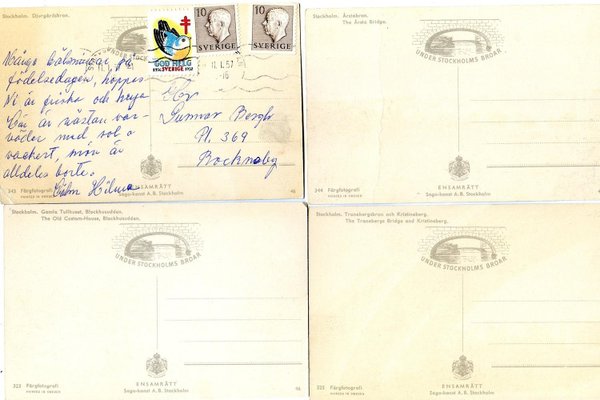 Stockholm. Djurgårdsbron.
UNDER STOCKHOLMS BROAR
GOD HELG
1956 SVERIGE 1957
10
SVERIGE
10
SVERIGE
1.57
-16
Många hälsningar på
födelsedagen, hoppas
Ni är friska och
här är nästan vår-
väder med sol o
vackert, snön är
alldeles borta.
Hilma
Hr
Gunnar Bergh
Pl. 369
Rocknaby
343 Färgfotografi
PRINTED IN SWEDEN
ENSAMRÄTT
Saga-konst A. B. Stockholm
46
Stockholm. Årstabron.
The Årsta Bridge.
UNDER STOCKHOLMS BROAR
344 Färgfotografi
PRINTED IN SWEDEN
ENSAMRÄTT
Saga-konst A. B. Stockholm
46
Stockholm. Gamla Tullhuset, Blockhusudden.
The Old Custom-House, Blockhusudden.
UNDER STOCKHOLMS BROAR
323 Färgfotografi
PRINTED IN SWEDEN
ENSAMRÄTT
Saga-konst A. B. Stockholm
46
Stockholm. Tranebergsbron och Kristineberg.
The Traneberga Bridge and Kristineberg.
UNDER STOCKHOLMS BROAR
325 Färgfotografi
PRINTED IN SWEDEN
ENSAMRÄTT
Saga-konst A. B. Stockholm